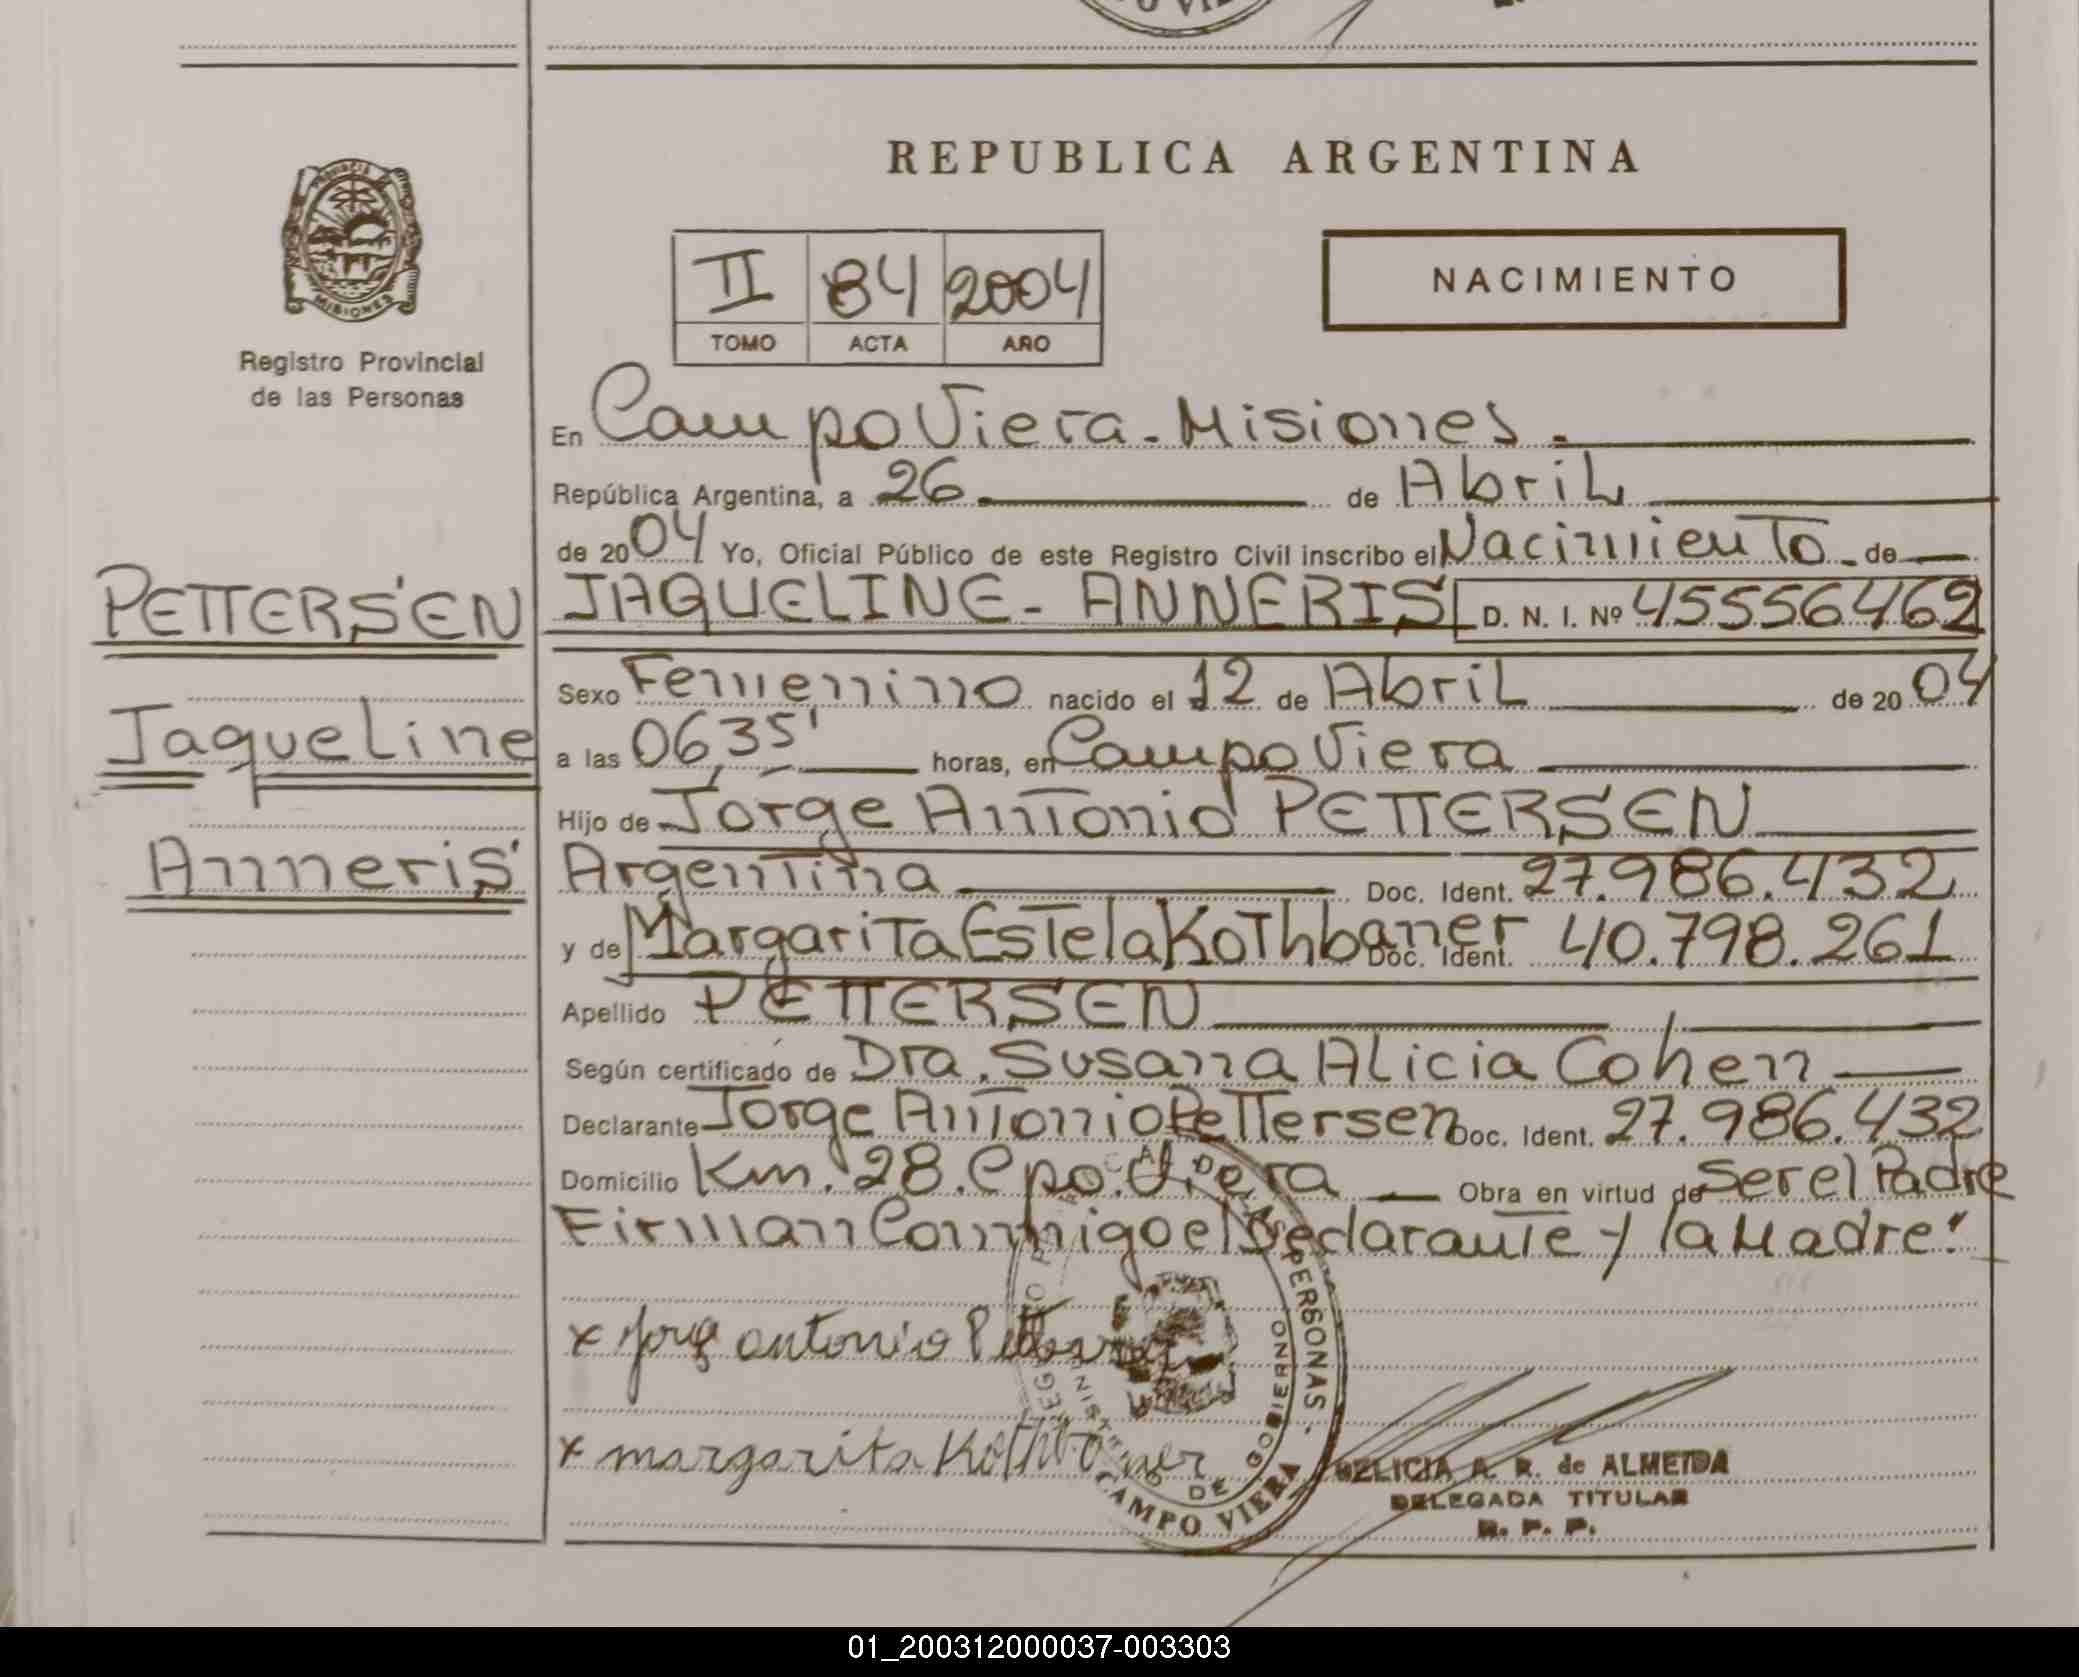 REPUBLICA ARGENTINA
PROVINCIA DE
MISIONES
Registro Provincial
de las Personas
II 84 2004
TOMO ACTA AÑO
NACIMIENTO
En Campo Viera - Misiones.
República Argentina, a 26 de Abril
de 2004 Yo, Oficial Público de este Registro Civil inscribo el Nacimiento de
PETTERSEN
Jaqueline
Anneris
JAQUELINE - ANNERIS D. N. I. Nº 45556462
Sexo Femenino nacido el 12 de Abril de 2004
a las 06,35' horas, en Campo Viera
Hijo de Jorge Antonio PETTERSEN
Argentina Doc. Ident. 27.986.432
y de Margarita Estela Kothbaner Doc. Ident. 40.798.261
Apellido PETTERSEN
Según certificado de Dra. Susana Alicia Cohen
Declarante Jorge Antonio Pettersen Doc. Ident. 27.986.432
Domicilio Km. 28. Cpo. Viera Obra en virtud de ser el Padre
Firman Conmigo el Declarante y la Madre.
x Jorge antonio Pettersen
x margarita Kothbaner
DE LAS PERSONAS
MINISTERIO DE GOBIERNO
CAMPO VIERA
DELICIA A. R. de ALMEIDA
DELEGADA TITULAR
R. P. P.
01_200312000037-003303